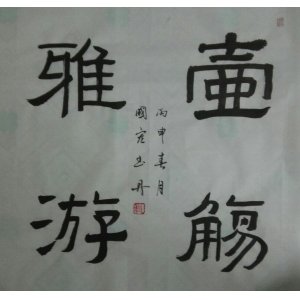 壺觴
雅游
丙申春月
國宏书丹